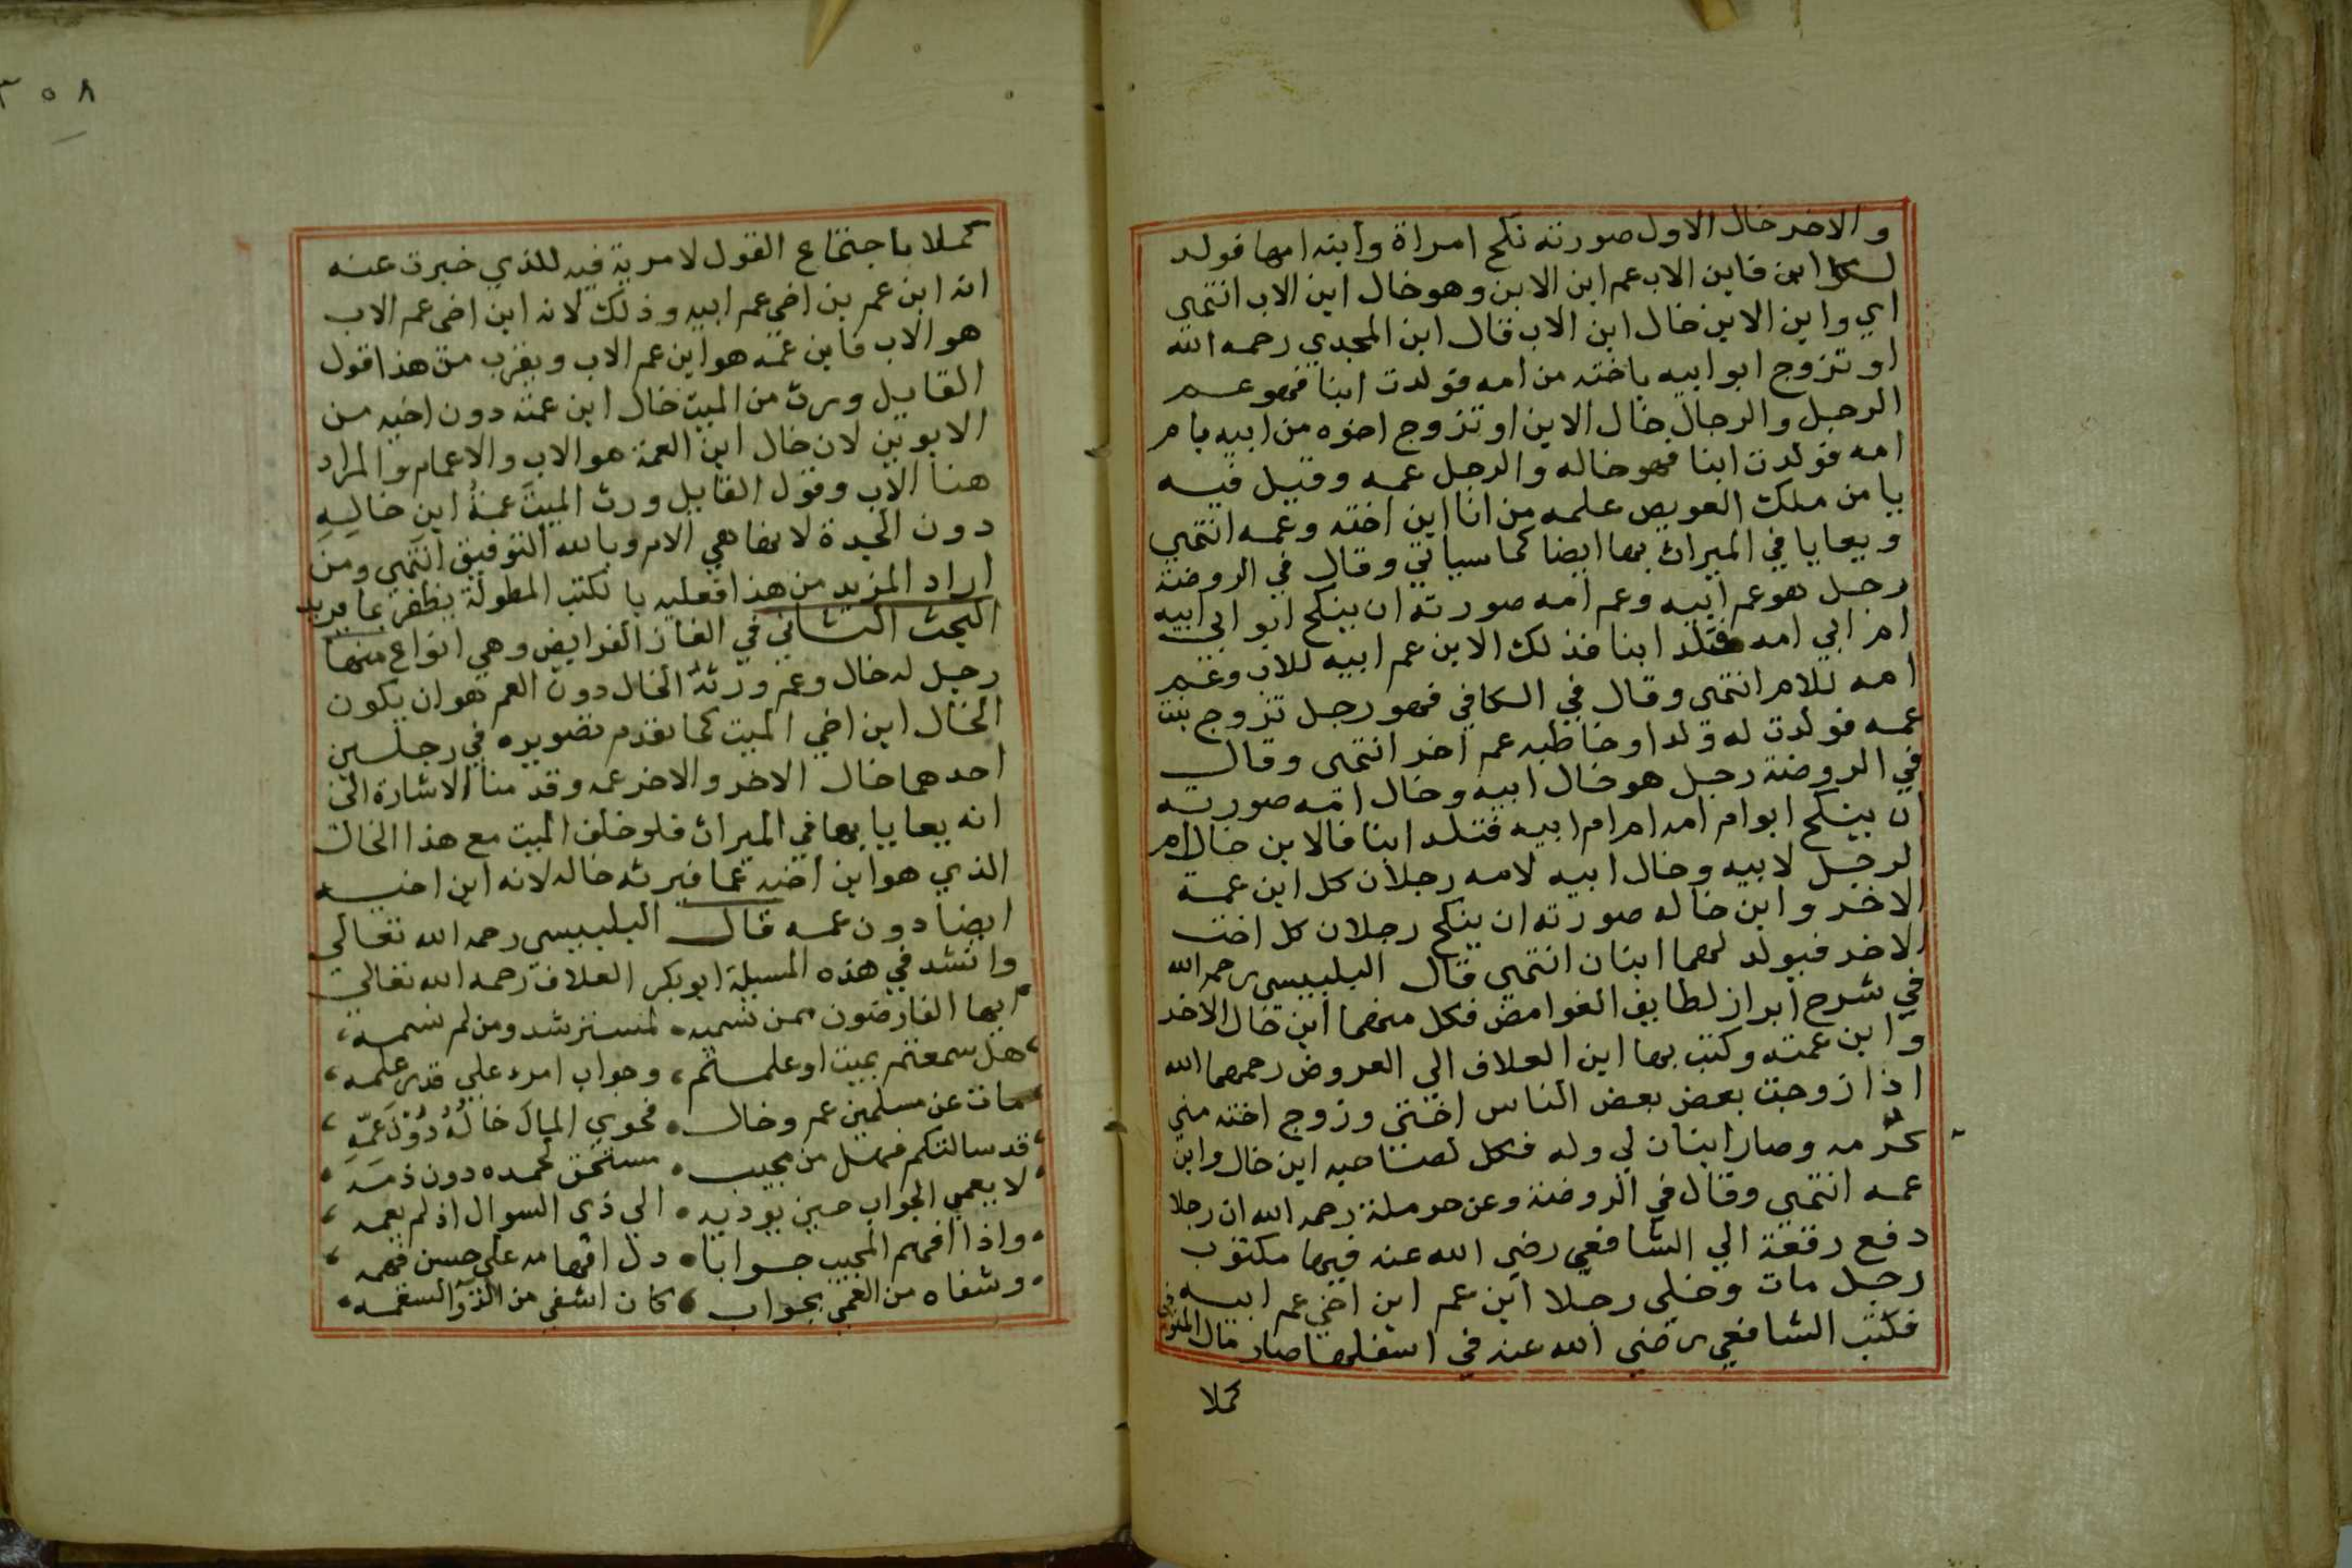 والاخر خال الاول صورته نكح امراة وابنه امها فولد
لكل ابن فابن الاب عم ابن الابن وهو خال ابن الاب انتهى
اي وابن الابن خال ابن الاب قال ابن المجدي رحمه الله
او تزوج ابو ابيه باخته من امه فولدت ابنا فهو عم
الرجل والرجال خال الابن او تزوج اخوه من ابيه بام
امه فولدت ابنا فهو خاله والرجل عمه وقيل فيه
يا من ملك العويص علمه من انا ابن اخته وعمه انتهى
ويعايا في الميراث بها ايضا كما سياتي وقال في الروضة
رجل هو عم ابيه وعم امه صورته ان ينكح ابو ابي ابيه
ام ابي امه فتلد ابنا فذلك الابن عم ابيه للاب وعم
امه للام انتهى وقال في الكافي فهو رجل تزوج بنت
عمه فولدت له ولدا وخاطبه عم اخر انتهى وقال
في الروضة رجل هو خال ابيه وخال امه صورته
ان ينكح ابو ام امه ام ام ابيه فتلد ابنا فالابن خال ام
الرجل لابيه وخال ابيه لامه رجلان كل ابن عمة
الاخر وابن خاله صورته ان ينكح رجلان كل اخت
الاخر فيولد لهما ابنان انتهى قال البلبيسي رحمه الله
في شرح ابراز لطايف الغوامض فكل منهما ابن خال الاخر
وابن عمته وكتب بها ابن العلاف الي العروض رحمهما الله
اذا زوجت بعض بعض الناس اختي وزوج اخته مني
كرمه وصار ابنان لي وله فكل لصاحبه ابن خال وابن
عمه انتهى وقال في الروضة وعن حرملة رحمه الله ان رجلا
دفع رقعة الي الشافعي رضي الله عنه فيها مكتوب
رجل مات وخلي رجلا ابن عم ابن اخي عم ابيه
فكتب الشافعي رضي الله عنه في اسفلها صار مال المتوفى
كملا
٣٠٨
كملا باجتماع القول لا مرية فيه للذي خبرت عنه
انه ابن عم بن اخي عم ابيه وذلك لانه ابن اخى عم الاب
هو الاب فابن عمه هو ابن عم الاب ويقرب من هذا قول
القايل ورث من الميت خال ابن عمته دون اخيه من
الابوين لان خال ابن العمة هو الاب والاعمام والمراد
هنا الاب وقول القايل ورث الميت عمة ابن خاليه
دون الجدة لانها هي الام وبالله التوفيق انتهى ومن
اراد المزيد من هذا فعليه بالكتب المطولة يظفر بما يريد
البحث الثاني في الغاز الفرايض وهي انواع منها
رجل له خال وعم ورثه الخال دون العم هو ان يكون
الخال ابن اخي الميت كما تقدم تصويره في رجلين
احدهما خال الاخر والاخر عمه وقدمنا الاشارة الى
انه يعايا بها في الميراث فلو خلف الميت مع هذا الخال
الذي هو ابن اخيه عما فيرثه خاله لانه ابن اخيه
ايضا دون عمه قال البلبيسي رحمه الله تعالى
وانشد في هذه المسيلة ابو بكر العلاف رحمه الله تعالى
ايها الفارضون ممن نسميه • لمسترشد ومن لم نسمه
هل سمعتم بميت او علمتم، وجواب امرء علي قدر علمه
مات عن مسلمين عم وخال • فحوي المال خاله دون عمه
قد سالتكم فهل من مجيب • مستحق لحمده دون ذمه
لا يعمي الجواب حين يوديه • الي ذى السوال اذ لم يعمه
واذا افهم المجيب جوابا • دل افهامه على حسن فهمه
وشفاه من العمي بجواب • كان اشفى من الدوا لسقمه